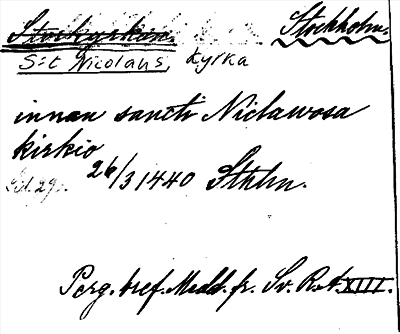 Storkyrkan. Stockholm.
S:t Nicolaus, kyrka
innan sancti Niclawosa
kirkio
26/3 1440 Sthlm.
Perg. bref. Medd. fr. Sv. R.A. XIII.